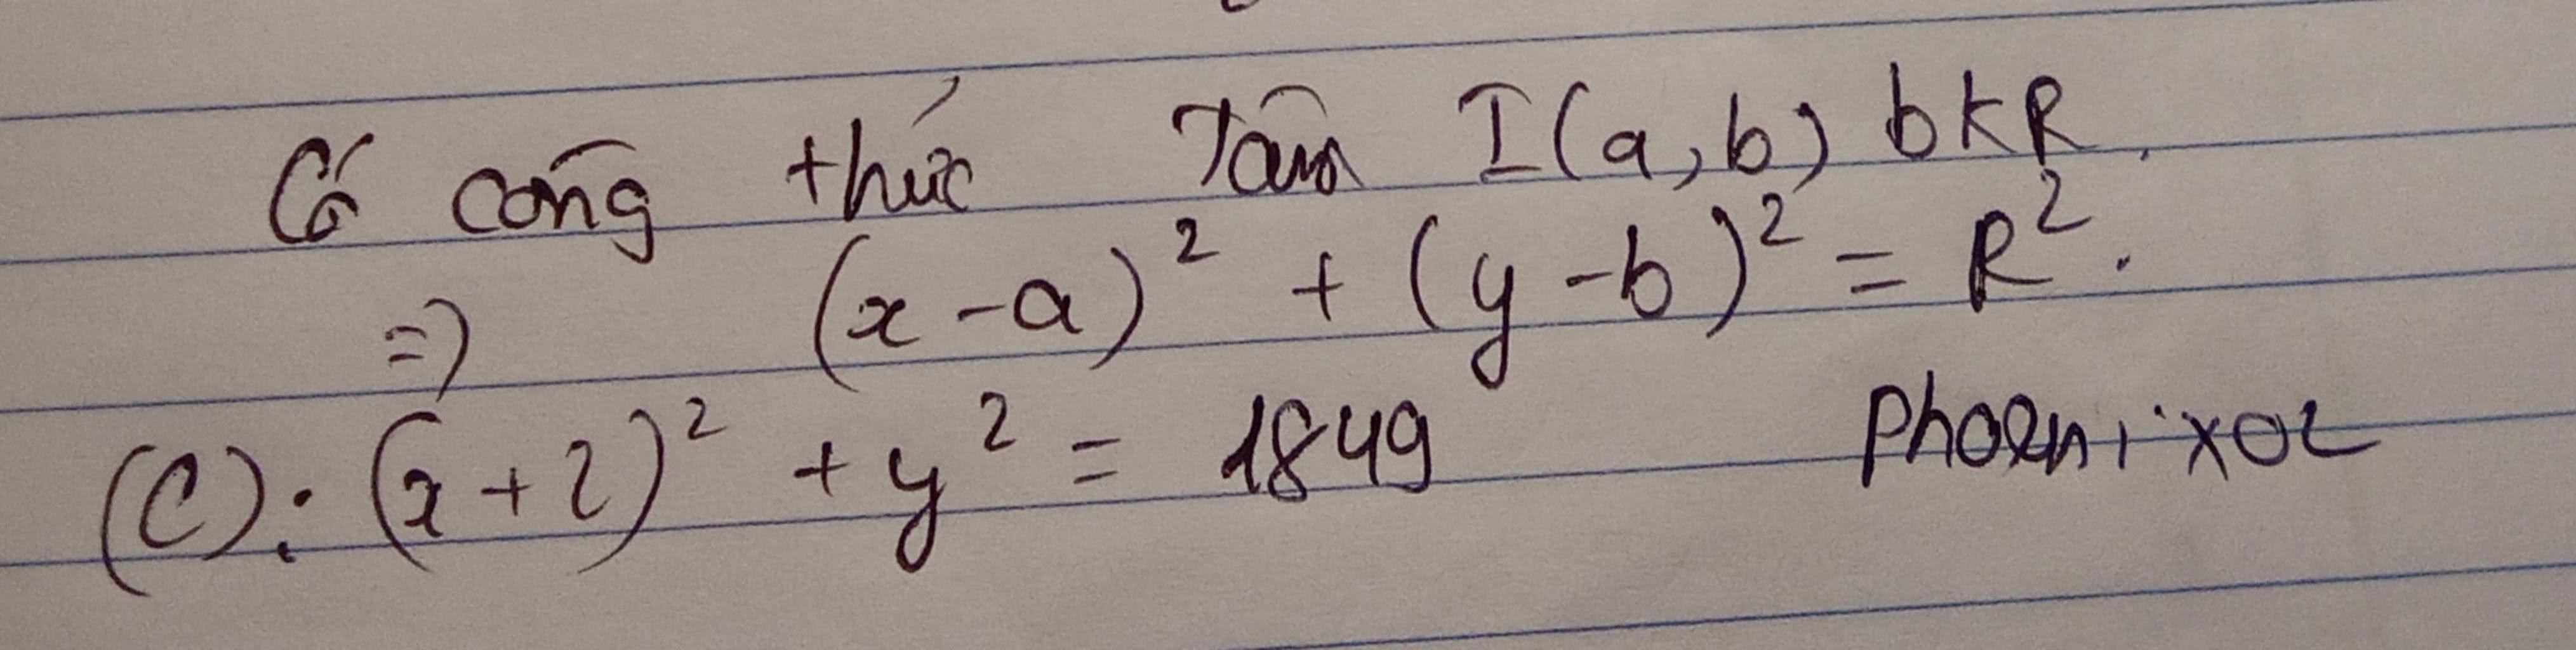 Có công thức Tâm I(a,b) bk R.
=> (x-a)² + (y-b)² = R².
(C): (x+2)² + y² = 1849